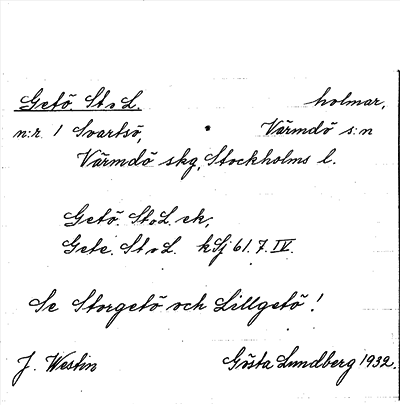 Getö. St. o L. holmar,
n:r 1 Svartsö, Värmdö s:n
Värmdö skg, Stockholms l.
Getö. St. o L. ek,
Gete. St. o L. kSj 61.7.IV.
Se Storgetö och Lillgetö!
J. Westin Gösta Lundberg 1932.